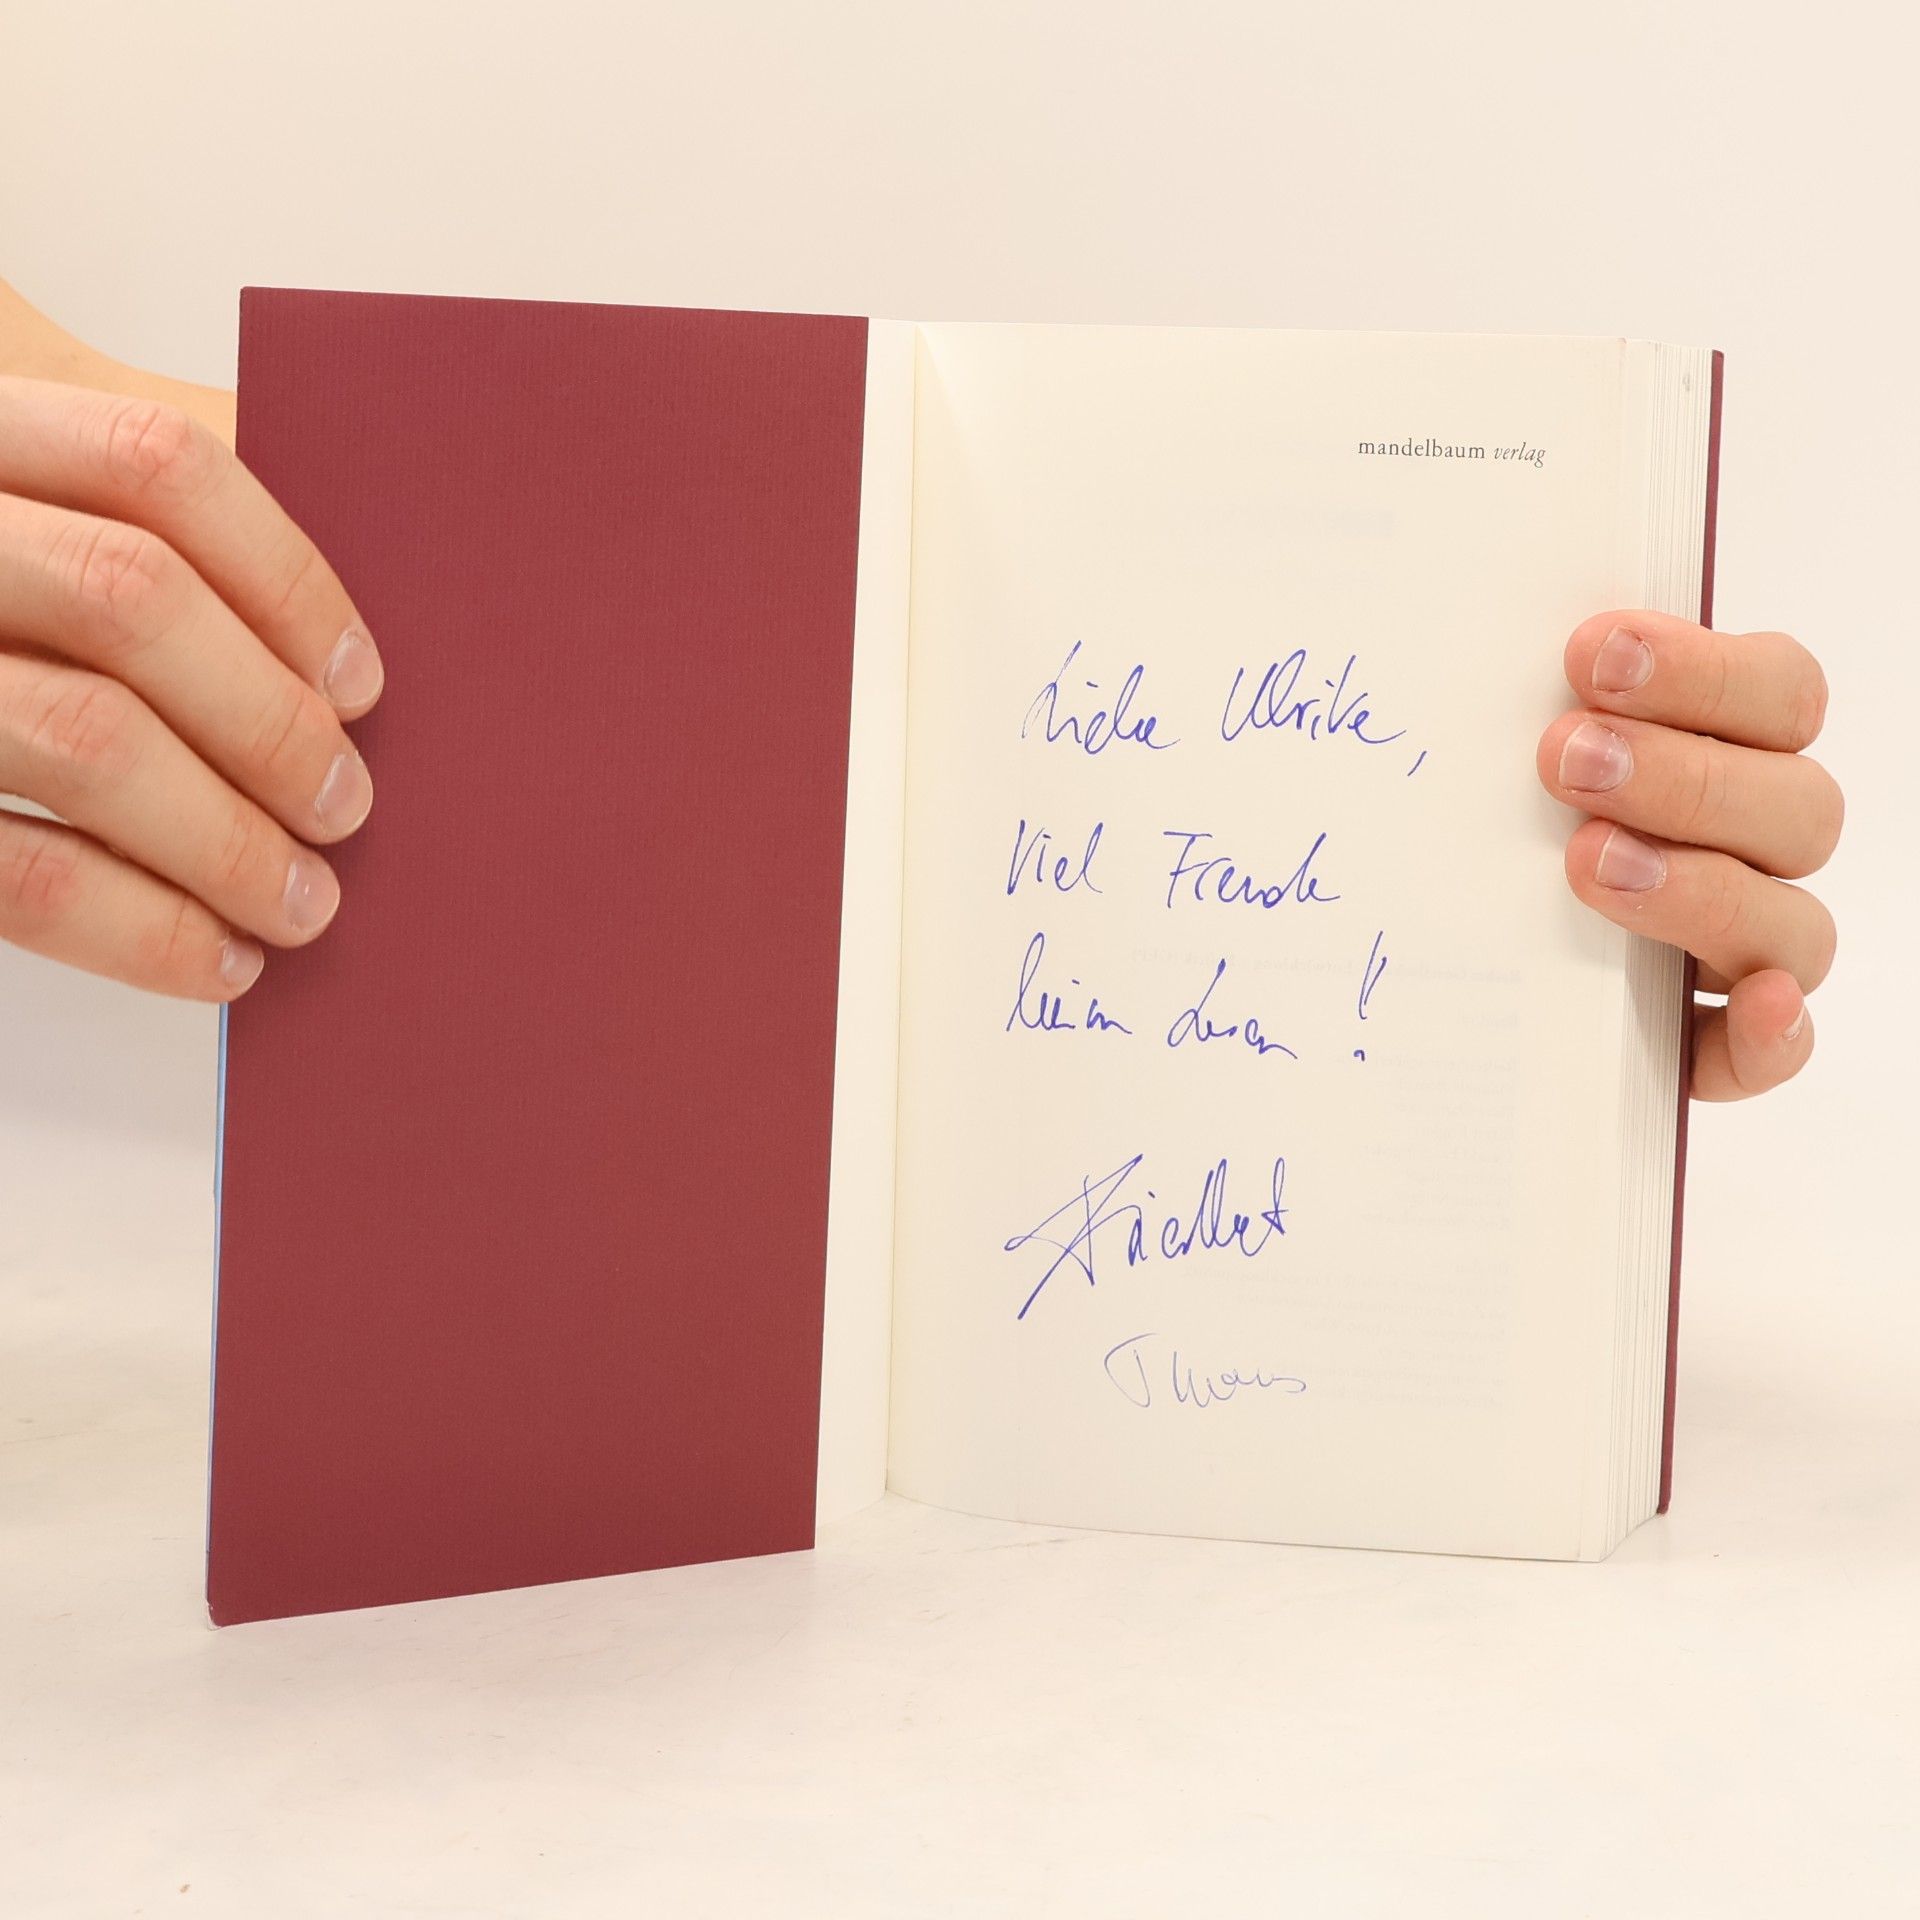 mandelbaum verlag
Liebe Ulrike,
Viel Freude
beim Lesen!
Friedbert
Thomas